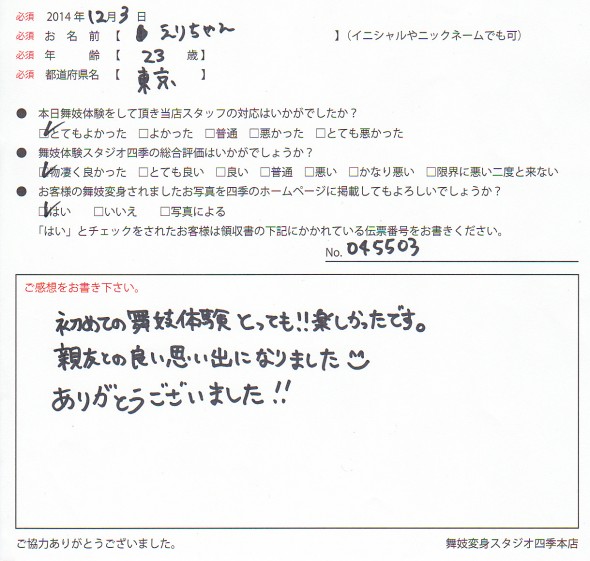 必須 2014年12月3日
必須 お名前【 えりちゃん 】(イニシャルやニックネームでも可)
必須 年齢【 23 歳】
必須 都道府県名【 東京 】
● 本日舞妓体験をして頂き当店スタッフの対応はいかがでしたか?
☑とてもよかった □よかった □普通 □悪かった □とても悪かった
● 舞妓体験スタジオ四季の総合評価はいかがでしょうか?
☑物凄く良かった □とても良い □良い □普通 □悪い □かなり悪い □限界に悪い二度と来ない
● お客様の舞妓変身されましたお写真を四季のホームページに掲載してもよろしいでしょうか?
☑はい □いいえ □写真による
「はい」とチェックをされたお客様は領収書の下記にかかれている伝票番号をお書きください。
No. 045503
ご感想をお書き下さい。
初めての舞妓体験とっても!!楽しかったです。
親友との良い思い出になりました
ありがとうございました!!
ご協力ありがとうございました。 舞妓変身スタジオ四季本店